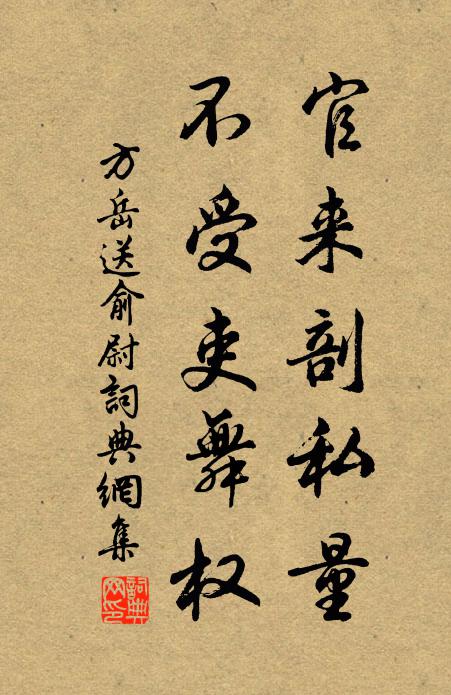 官来剖私量
不受吏舞权
方岳送俞尉詞典網集
詞典网印